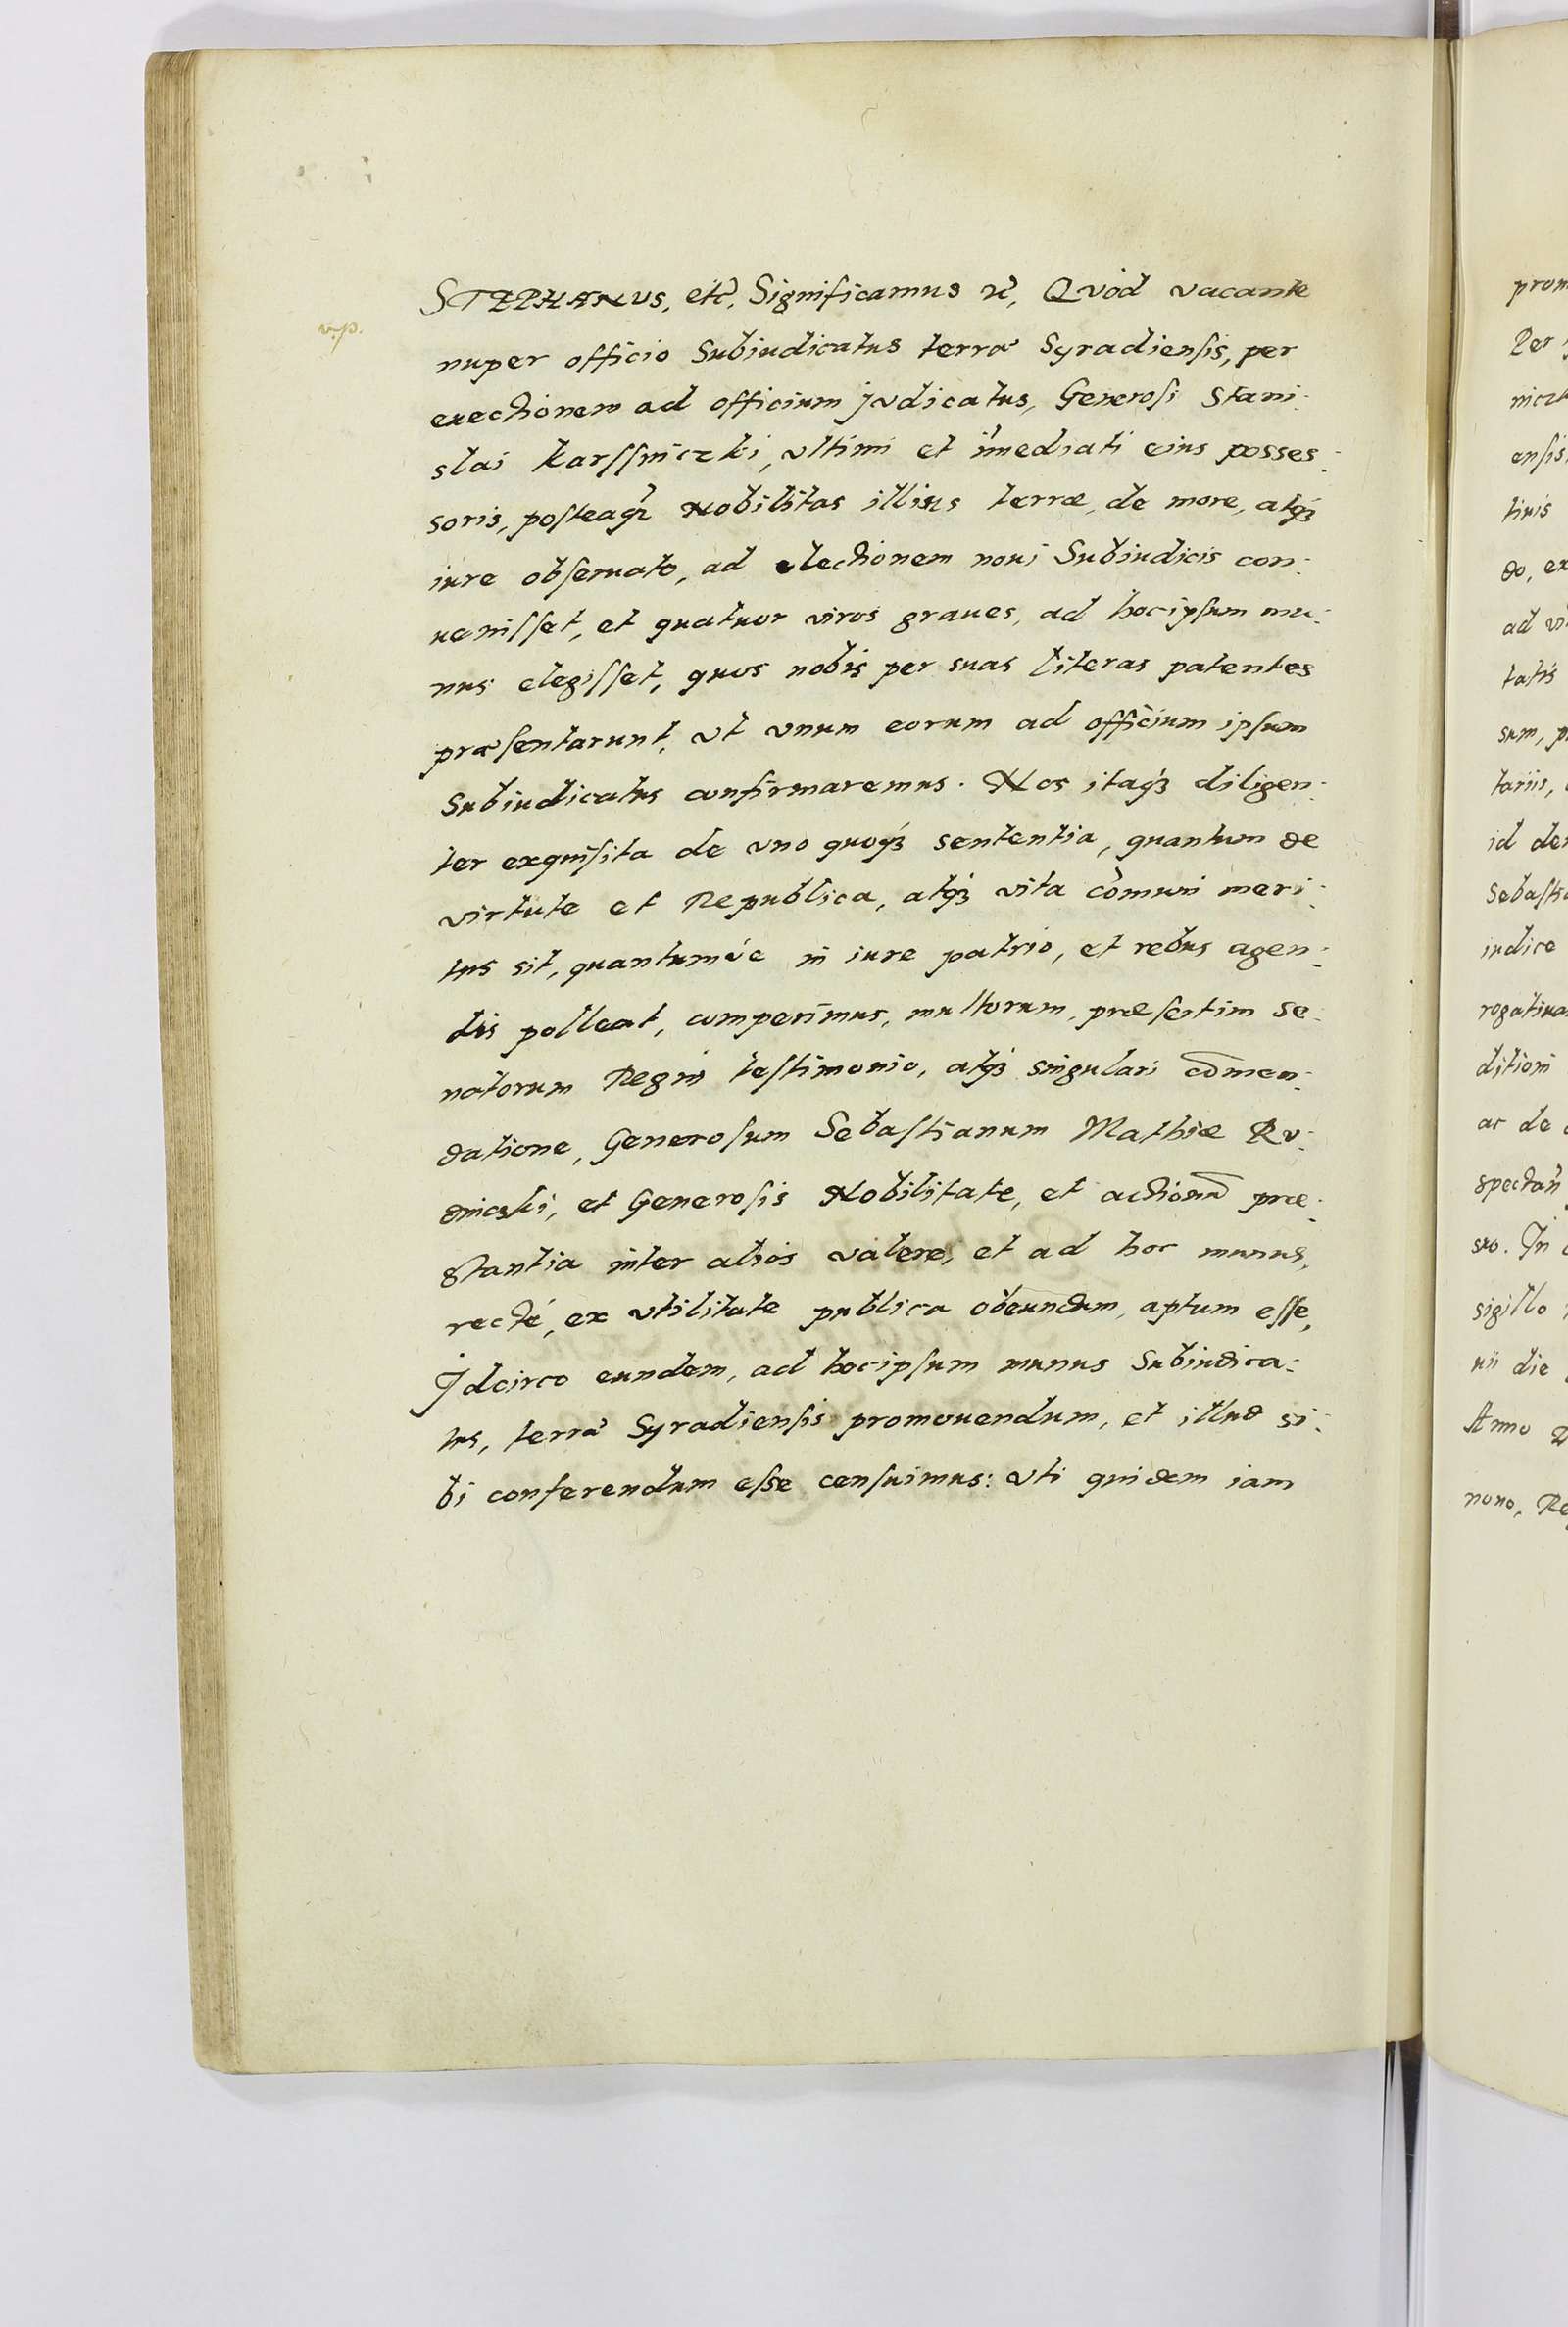 STEPHANUS, etc̃, Significamus ꝛc̃, Quòd vacante
v.p.
nuper officio Subiudicatus terræ Syradiensis, per
euectionem ad officium judicatus, Generosi Stani:
slai Karssniczki, vltimi et im̃ediati eius posses:
soris, posteaq̃ Nobilitas illius terræ, de more, atq́ꝫ
iure obseruato, ad electionem noui Subiudicis con:
uenisset, et quatuor viros graues, ad hocipsum mu:
nus elegisset, quos nobis per suas literas patentes
præsentarunt, vt vnum eorum ad officium ipsum
Subiudicatus confirmaremus. Nos itaq́ꝫ diligen:
ter exquisita de vno quoq́ꝫ sententia, quantum de
virtute et Republica, atq́ꝫ vita com̃uni meri:
tus sit, quantumùe in iure patrio, et rebus agen:
dis polleat, comperimus, multorum, præsertim Se:
natorum Regni testimonio, atq́ꝫ singulari com̃en:
datione, Generosum Sebastianum Mathiæ Ru:
dniczki, et Generosis Nobilitate, et actionũ præ:
stantia inter alios valere, et ad hoc munus,
recté, ex vtilitate publica obeundum, aptum esse,
Idcirco eundem, ad hocipsum munus Subiudica:
tus, terræ Syradiensis promouendum, et illud si:
bi conferendum esse censuimus: vti quidem iam
prom
Per
niczk
ensis,
tinis
do, ex
ad vi
tatis
sum, p
tariis,
id de
Sebasti
iudice
rogatiua
ditioni
ac de
spectañ
suo. In
sigillo
nii die
Anno D
nono, Re